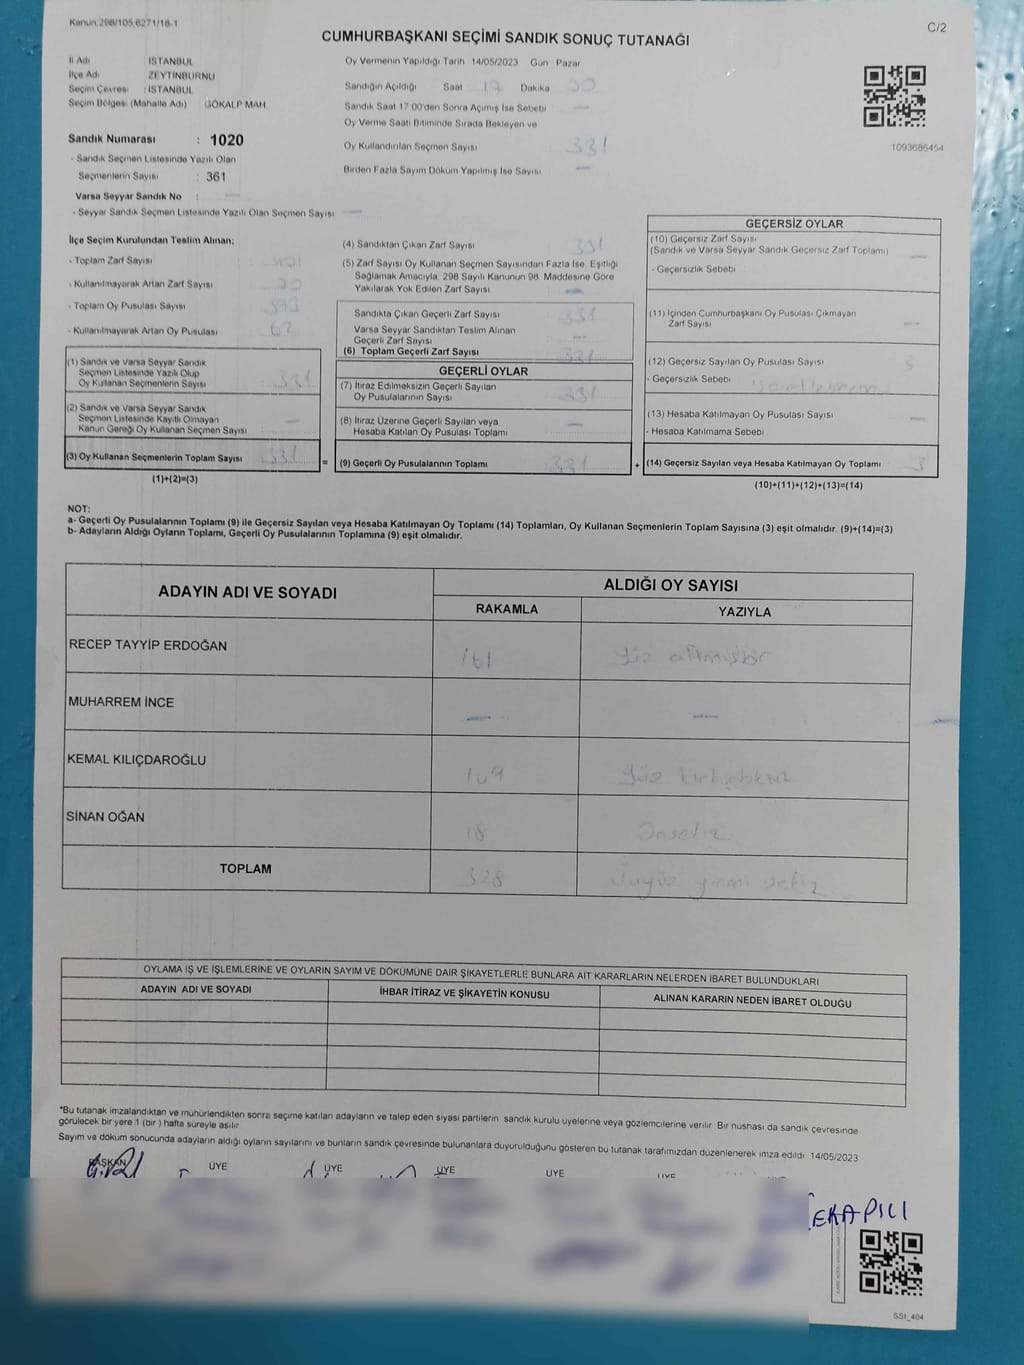 Kanun.298/105,6271/18-1
C/2
CUMHURBAŞKANI SEÇİMİ SANDIK SONUÇ TUTANAĞI
İl Adı İSTANBUL
İlçe Adı ZEYTİNBURNU
Seçim Çevresi : İSTANBUL
Seçim Bölgesi (Mahalle Adı) GÖKALP MAH
Sandık Numarası : 1020
- Sandık Seçmen Listesinde Yazılı Olan
Seçmenlerin Sayısı : 361
Varsa Seyyar Sandık No : —
- Seyyar Sandık Seçmen Listesinde Yazılı Olan Seçmen Sayısı —
Oy Vermenin Yapıldığı Tarih 14/05/2023 Gün : Pazar
Sandığın Açıldığı Saat 17 Dakika
Sandık Saat 17 00'den Sonra Açımış İse Sebebi —
Oy Verme Saati Bitiminde Sırada Bekleyen ve
Oy Kullandırılan Seçmen Sayısı 331
Birden Fazla Sayım Döküm Yapılmış İse Sayısı —
1093686454
İlçe Seçim Kurulundan Teslim Alınan;
- Toplam Zarf Sayısı
- Kullanılmayarak Artan Zarf Sayısı
- Toplam Oy Pusulası Sayısı 393
- Kullanılmayarak Artan Oy Pusulası 62
(1) Sandık ve Varsa Seyyar Sandık
Seçmen Listesinde Yazılı Olup
Oy Kullanan Seçmenlerin Sayısı 331
(2) Sandık ve Varsa Seyyar Sandık
Seçmen Listesinde Kayıtlı Olmayan
Kanun Gereği Oy Kullanan Seçmen Sayısı —
(3) Oy Kullanan Seçmenlerin Toplam Sayısı 331
(1)+(2)=(3)
=
(4) Sandıktan Çıkan Zarf Sayısı 331
(5) Zarf Sayısı Oy Kullanan Seçmen Sayısından Fazla İse, Eşitliği
Sağlamak Amacıyla, 298 Sayılı Kanunun 98. Maddesine Göre
Yakılarak Yok Edilen Zarf Sayısı —
Sandıkta Çıkan Geçerli Zarf Sayısı 331
Varsa Seyyar Sandıktan Teslim Alınan
Geçerli Zarf Sayısı —
(6) Toplam Geçerli Zarf Sayısı 331
GEÇERLİ OYLAR
(7) İtiraz Edilmeksizin Geçerli Sayılan
Oy Pusulalarının Sayısı 331
(8) İtiraz Üzerine Geçerli Sayılan veya
Hesaba Katılan Oy Pusulası Toplamı —
(9) Geçerli Oy Pusulalarının Toplamı 331
+
GEÇERSİZ OYLAR
(10) Geçersiz Zarf Sayısı
(Sandık ve Varsa Seyyar Sandık Geçersiz Zarf Toplamı) —
- Geçersizlik Sebebi
(11) İçinden Cumhurbaşkanı Oy Pusulası Çıkmayan
Zarf Sayısı —
(12) Geçersiz Sayılan Oy Pusulası Sayısı 3
- Geçersizlik Sebebi
(13) Hesaba Katılmayan Oy Pusulası Sayısı —
- Hesaba Katılmama Sebebi
(14) Geçersiz Sayılan veya Hesaba Katılmayan Oy Toplamı 3
(10)+(11)+(12)+(13)=(14)
NOT:
a- Geçerli Oy Pusulalarının Toplamı (9) ile Geçersiz Sayılan veya Hesaba Katılmayan Oy Toplamı (14) Toplamları, Oy Kullanan Seçmenlerin Toplam Sayısına (3) eşit olmalıdır. (9)+(14)=(3)
b- Adayların Aldığı Oyların Toplamı, Geçerli Oy Pusulalarının Toplamına (9) eşit olmalıdır.
ADAYIN ADI VE SOYADI
ALDIĞI OY SAYISI
RAKAMLA YAZIYLA
RECEP TAYYİP ERDOĞAN 161 Yüz altmışbir
MUHARREM İNCE — —
KEMAL KILIÇDAROĞLU 149 Yüz kırkdokuz
SİNAN OĞAN 18 Onsekiz
TOPLAM 328 Üçyüz yirmi sekiz
OYLAMA İŞ VE İŞLEMLERİNE VE OYLARIN SAYIM VE DÖKÜMÜNE DAİR ŞİKAYETLERLE BUNLARA AİT KARARLARIN NELERDEN İBARET BULUNDUKLARI
ADAYIN ADI VE SOYADI İHBAR İTİRAZ VE ŞİKAYETİN KONUSU ALINAN KARARIN NEDEN İBARET OLDUĞU
*Bu tutanak imzalandıktan ve mühürlendikten sonra seçime katılan adayların ve talep eden siyasi partilerin sandık kurulu üyelerine veya gözlemcilerine verilir. Bir nüshası da sandık çevresinde
görülecek bir yere 1 (bir ) hafta süreyle asılır
Sayım ve döküm sonucunda adayların aldığı oyların sayılarını ve bunların sandık çevresinde bulunanlara duyurulduğunu gösteren bu tutanak tarafımızdan düzenlenerek imza edildi. 14/05/2023
BAŞKAN ÜYE ÜYE ÜYE ÜYE ÜYE
EKAPILI
SSI_404